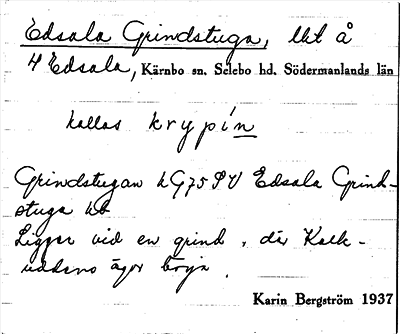 Edsala Grindstuga, lht å
4 Edsala, Kärnbo sn. Selebo hd. Södermanlands län
kallas krypin
Grindstugan LG75 SV Edsala Grind-
stuga hb
Ligger vid en grind, där Kalk-
uddens ägor börja.
Karin Bergström 1937